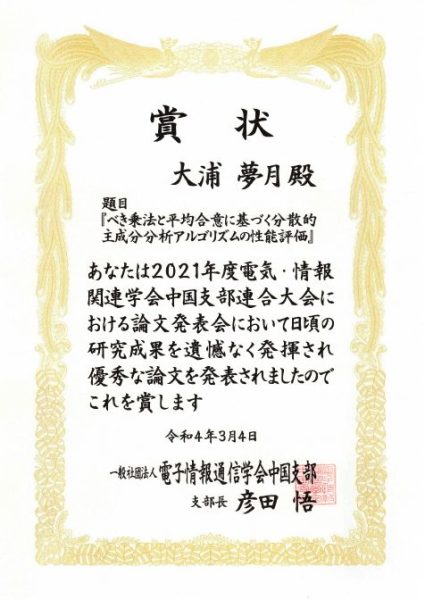 賞 状
大浦 夢月殿
題目
『べき乗法と平均合意に基づく分散的
主成分分析アルゴリズムの性能評価』
あなたは2021年度電気・情報
関連学会中国支部連合大会に
おける論文発表会において日頃の
研究成果を遺憾なく発揮され
優秀な論文を発表されましたので
これを賞します
令和4年3月4日
一般社団法人 電子情報通信学会中国支部
支部長 彦田 悟